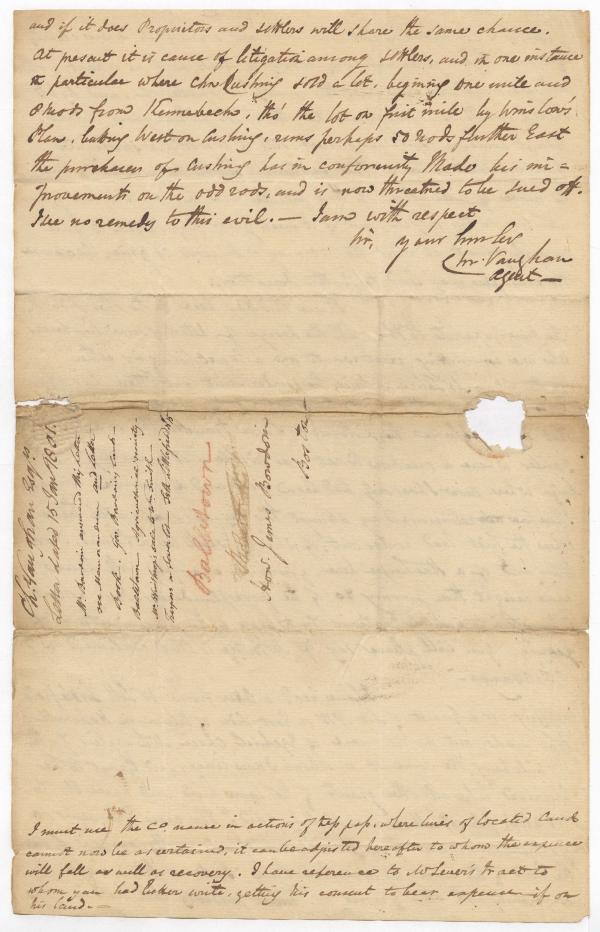 and if it does Proprietors and settlers will share the same chance.
At present it is cause of litigation among settlers, and in one instance
in particular where Chs Cushing sold a lot, begining one mile and
8 rods from Kennebeck, tho' the lot on first mile by Winslow's
Plan, buting West on Cushing, runs perhaps 50 rods further East
the purchaser of Cushing has in conformity Made his im=
provements on the odd rods, and is now threatned to be sued off.
I see no remedy to this evil. — I am with respect
Sir, your hum Ser
Chs. Vaughan
Agent —
Ch. Vaughan Esqrs
Letter dated 15 Jany 1801.
Mr Bowdoin answered this Letter
see Memorandum and Letter
Book. Gov. Bowdoin's
Agricultural
Ballstown
Honl. James Bowdoin
Boston —
I must use the Co. name in actions of tresspass, where lines of located Lands
cannot now be ascertained, it can be adjusted hereafter to whom the expence
will fall as well as recovery. I have reference to tract to
whom you had write, getting his consent to bear expence if on
his land. —